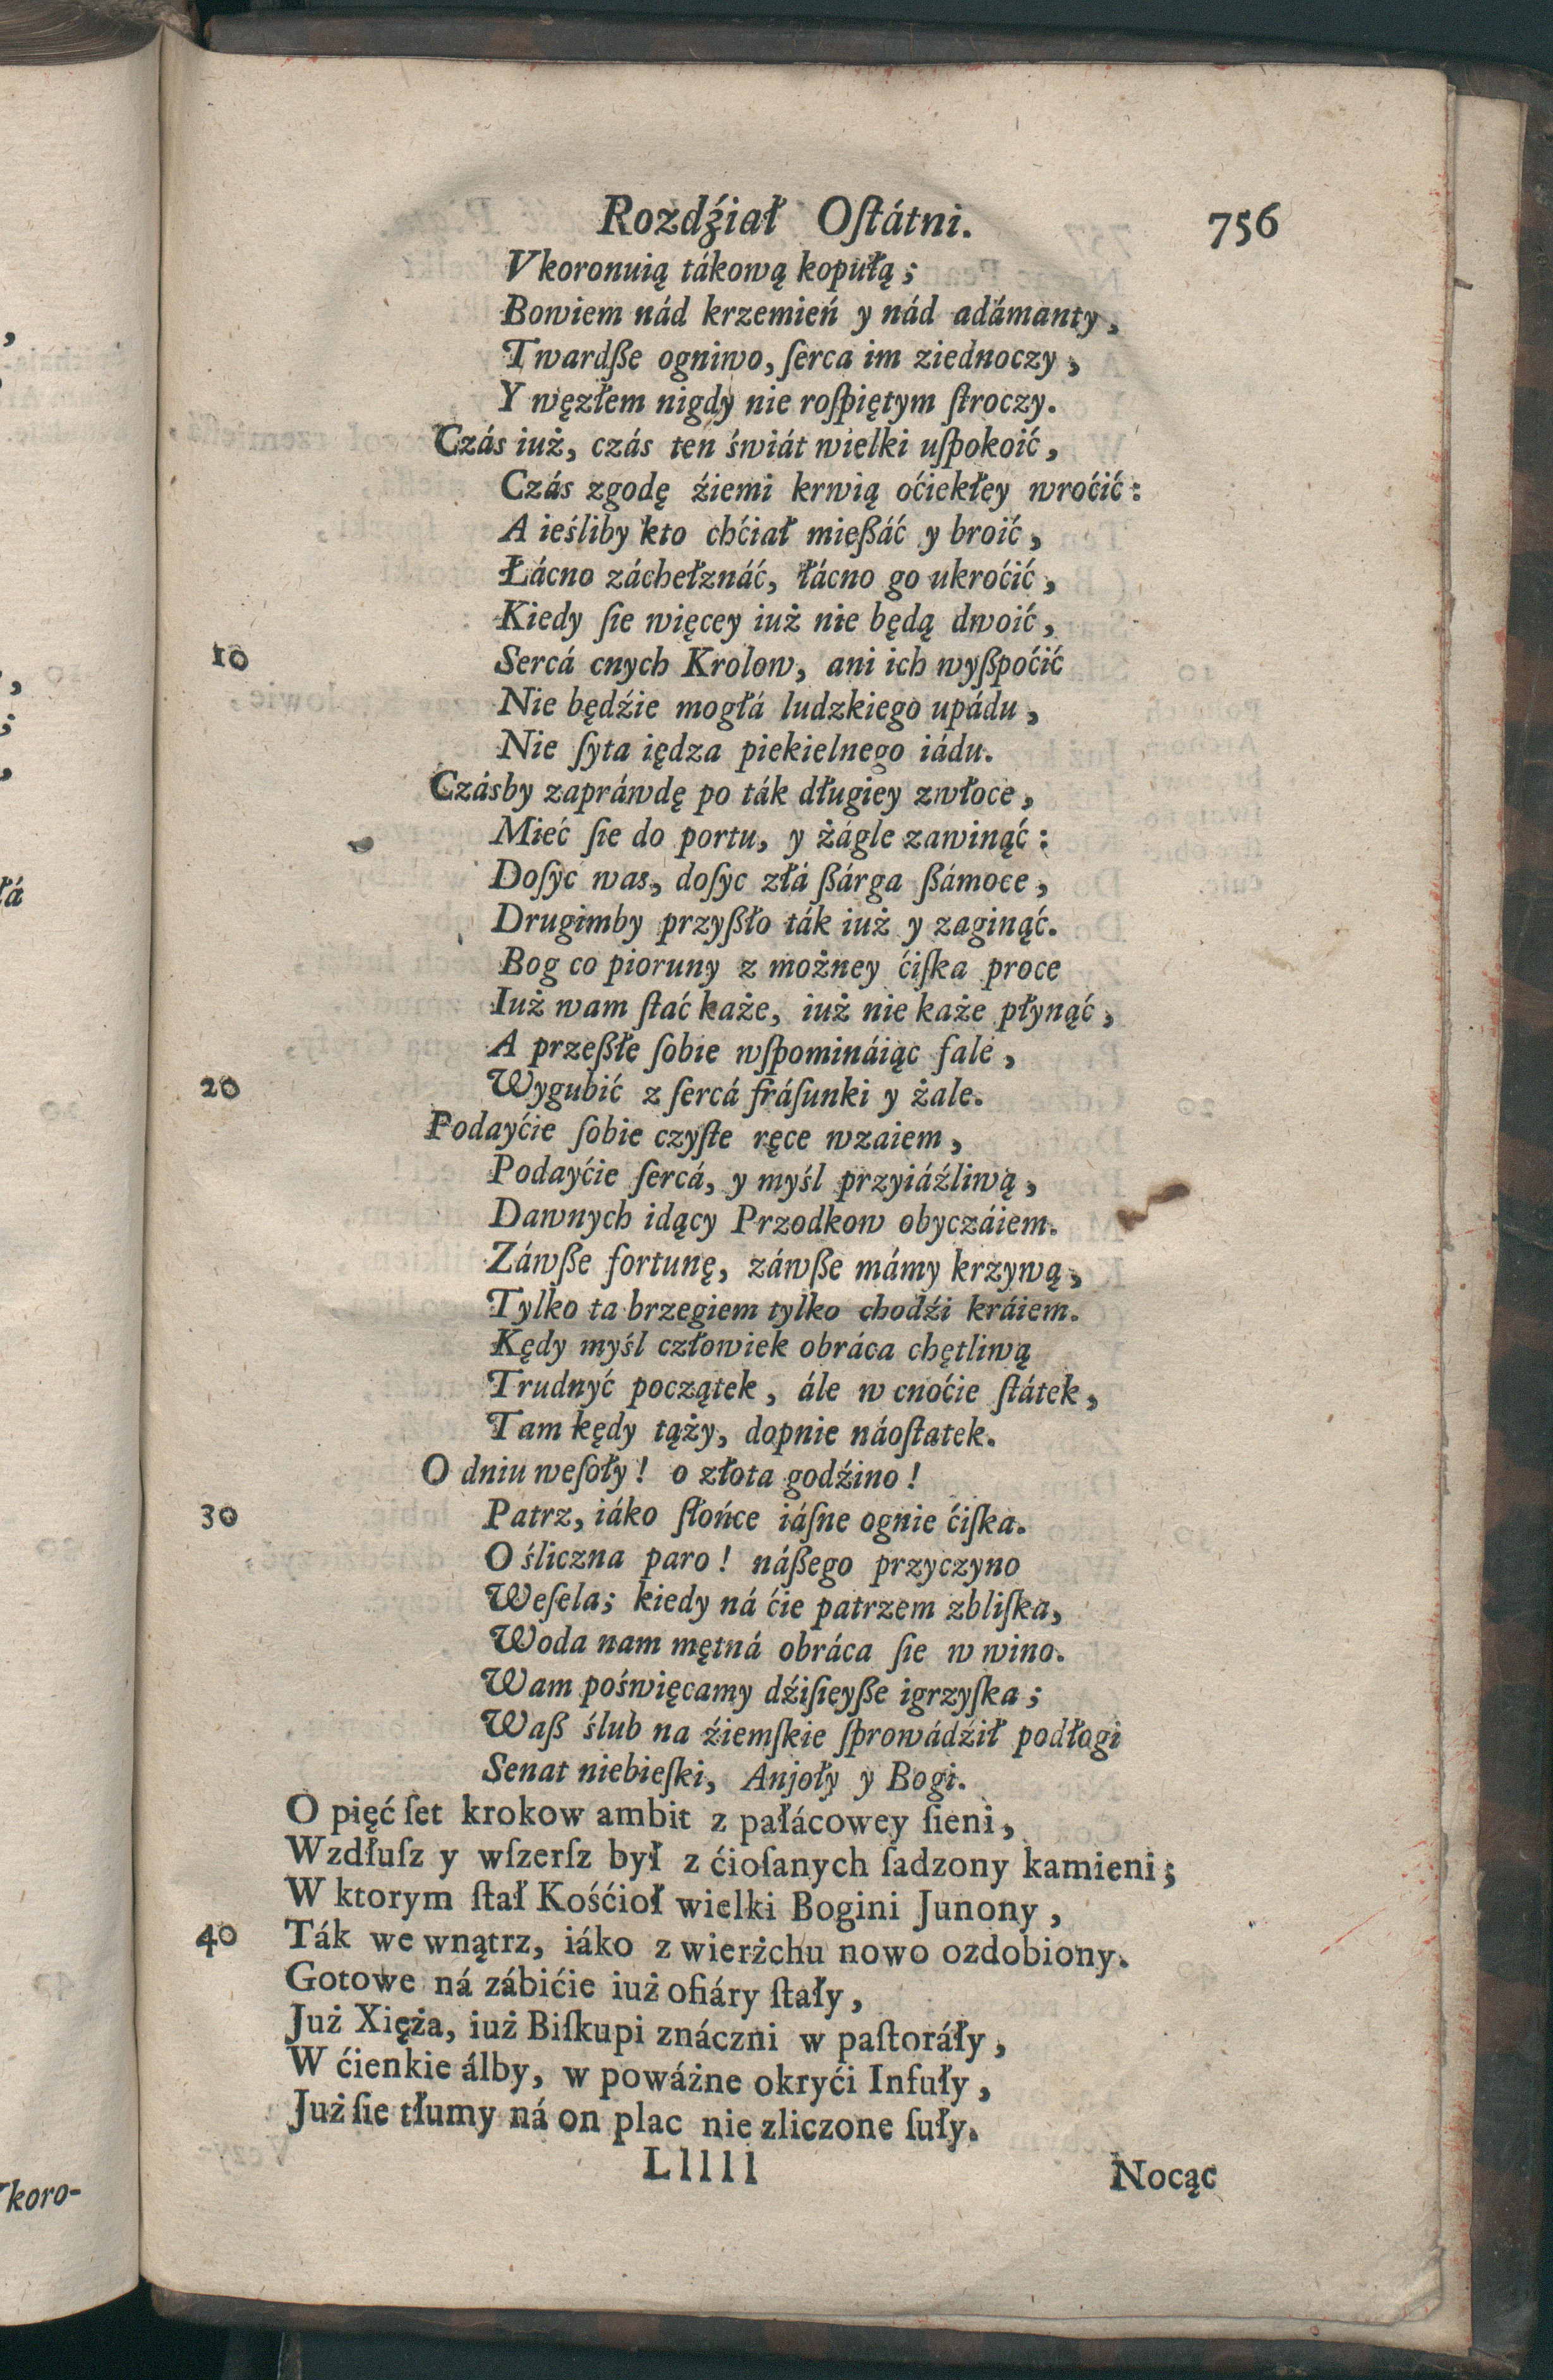 Rozdźiał Oſtátni. 756
Vkoronuią tákową kopułą;
Bowiem nád krzemień y nád adámanty,
Twardße ogniwo, ſerca im ziednoczy,
Y węzłem nigdy nie roſpiętym ſtroczy.
Czás iuż, czás ten świát wielki uſpokoić,
Czás zgodę źiemi krwią oćiekłey wroćić:
A ieśliby kto chćiał mießáć y broić,
Łácno záchełznáć, łácno go ukroćić,
Kiedy ſie więcey iuż nie będą dwoić,
10 Sercá cnych Krolow, ani ich wyßpoćić
Nie będźie mogłá ludzkiego upádu,
Nie ſyta iędza piekielnego iádu.
Czásby zapráwdę po ták długiey zwłoce,
Mieć ſie do portu, y żágle zawinąć:
Doſyc was, doſyc złá ßárga ßámoce,
Drugimby przyßło ták iuż y zaginąć.
Bog co pioruny z możney ćiſka proce
Iuż wam ſtać każe, iuż nie każe płynąć,
A przeßłe ſobie wſpomináiąc fale,
20 Wygubić z ſercá fráſunki y żale.
Podayćie ſobie czyſte ręce wzaiem,
Podayćie ſercá, y myśl przyiáźliwą,
Dawnych idący Przodkow obyczáiem.
Záwße fortunę, záwße mámy krzywą,
Tylko ta brzegiem tylko chodźi kráiem.
Kędy myśl człowiek obráca chętliwą
Trudnyć początek, ále w cnoćie ſtátek,
Tam kędy tąży, dopnie náoſtatek.
O dniu weſoły! o złota godźino!
30 Patrz, iáko ſłońce iáſne ognie ćiſka.
O śliczna paro! náßego przyczyno
Weſela; kiedy ná ćie patrzem zbliſka,
Woda nam mętná obráca ſie w wino.
Wam poświęcamy dźiſieyße igrzyſka;
Waß ślub na źiemſkie ſprowádźił podłogi
Senat niebieſki, Anjoły y Bogi.
O pięć ſet krokow ambit z pałácowey ſieni,
Wzdłuſz y wſzerſz był z ćioſanych ſadzony kamieni;
W ktorym ſtał Kośćioł wielki Bogini Junony,
40 Ták we wnątrz, iáko z wierżchu nowo ozdobiony.
Gotowe ná zábićie iuż ofiáry ſtały,
Już Xięża, iuż Biſkupi znáczni w paſtoráły,
W ćienkie álby, w poważne okryći Infuły,
Już ſie tłumy ná on plac nie zliczone ſuły.
Lllll Nocąc
łá
koro-